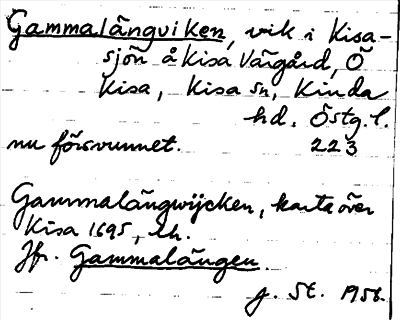 Gammalängviken, vik i Kisa-
sjön å Kisa Värgård, Ö
Kisa, Kisa sn, Kinda
hd, Östg. l.
nu försvunnet. 223
Gammalängwijcken, karta över
Kisa 1695, lh.
Jfr. Gammalängen.
J. St. 1956.